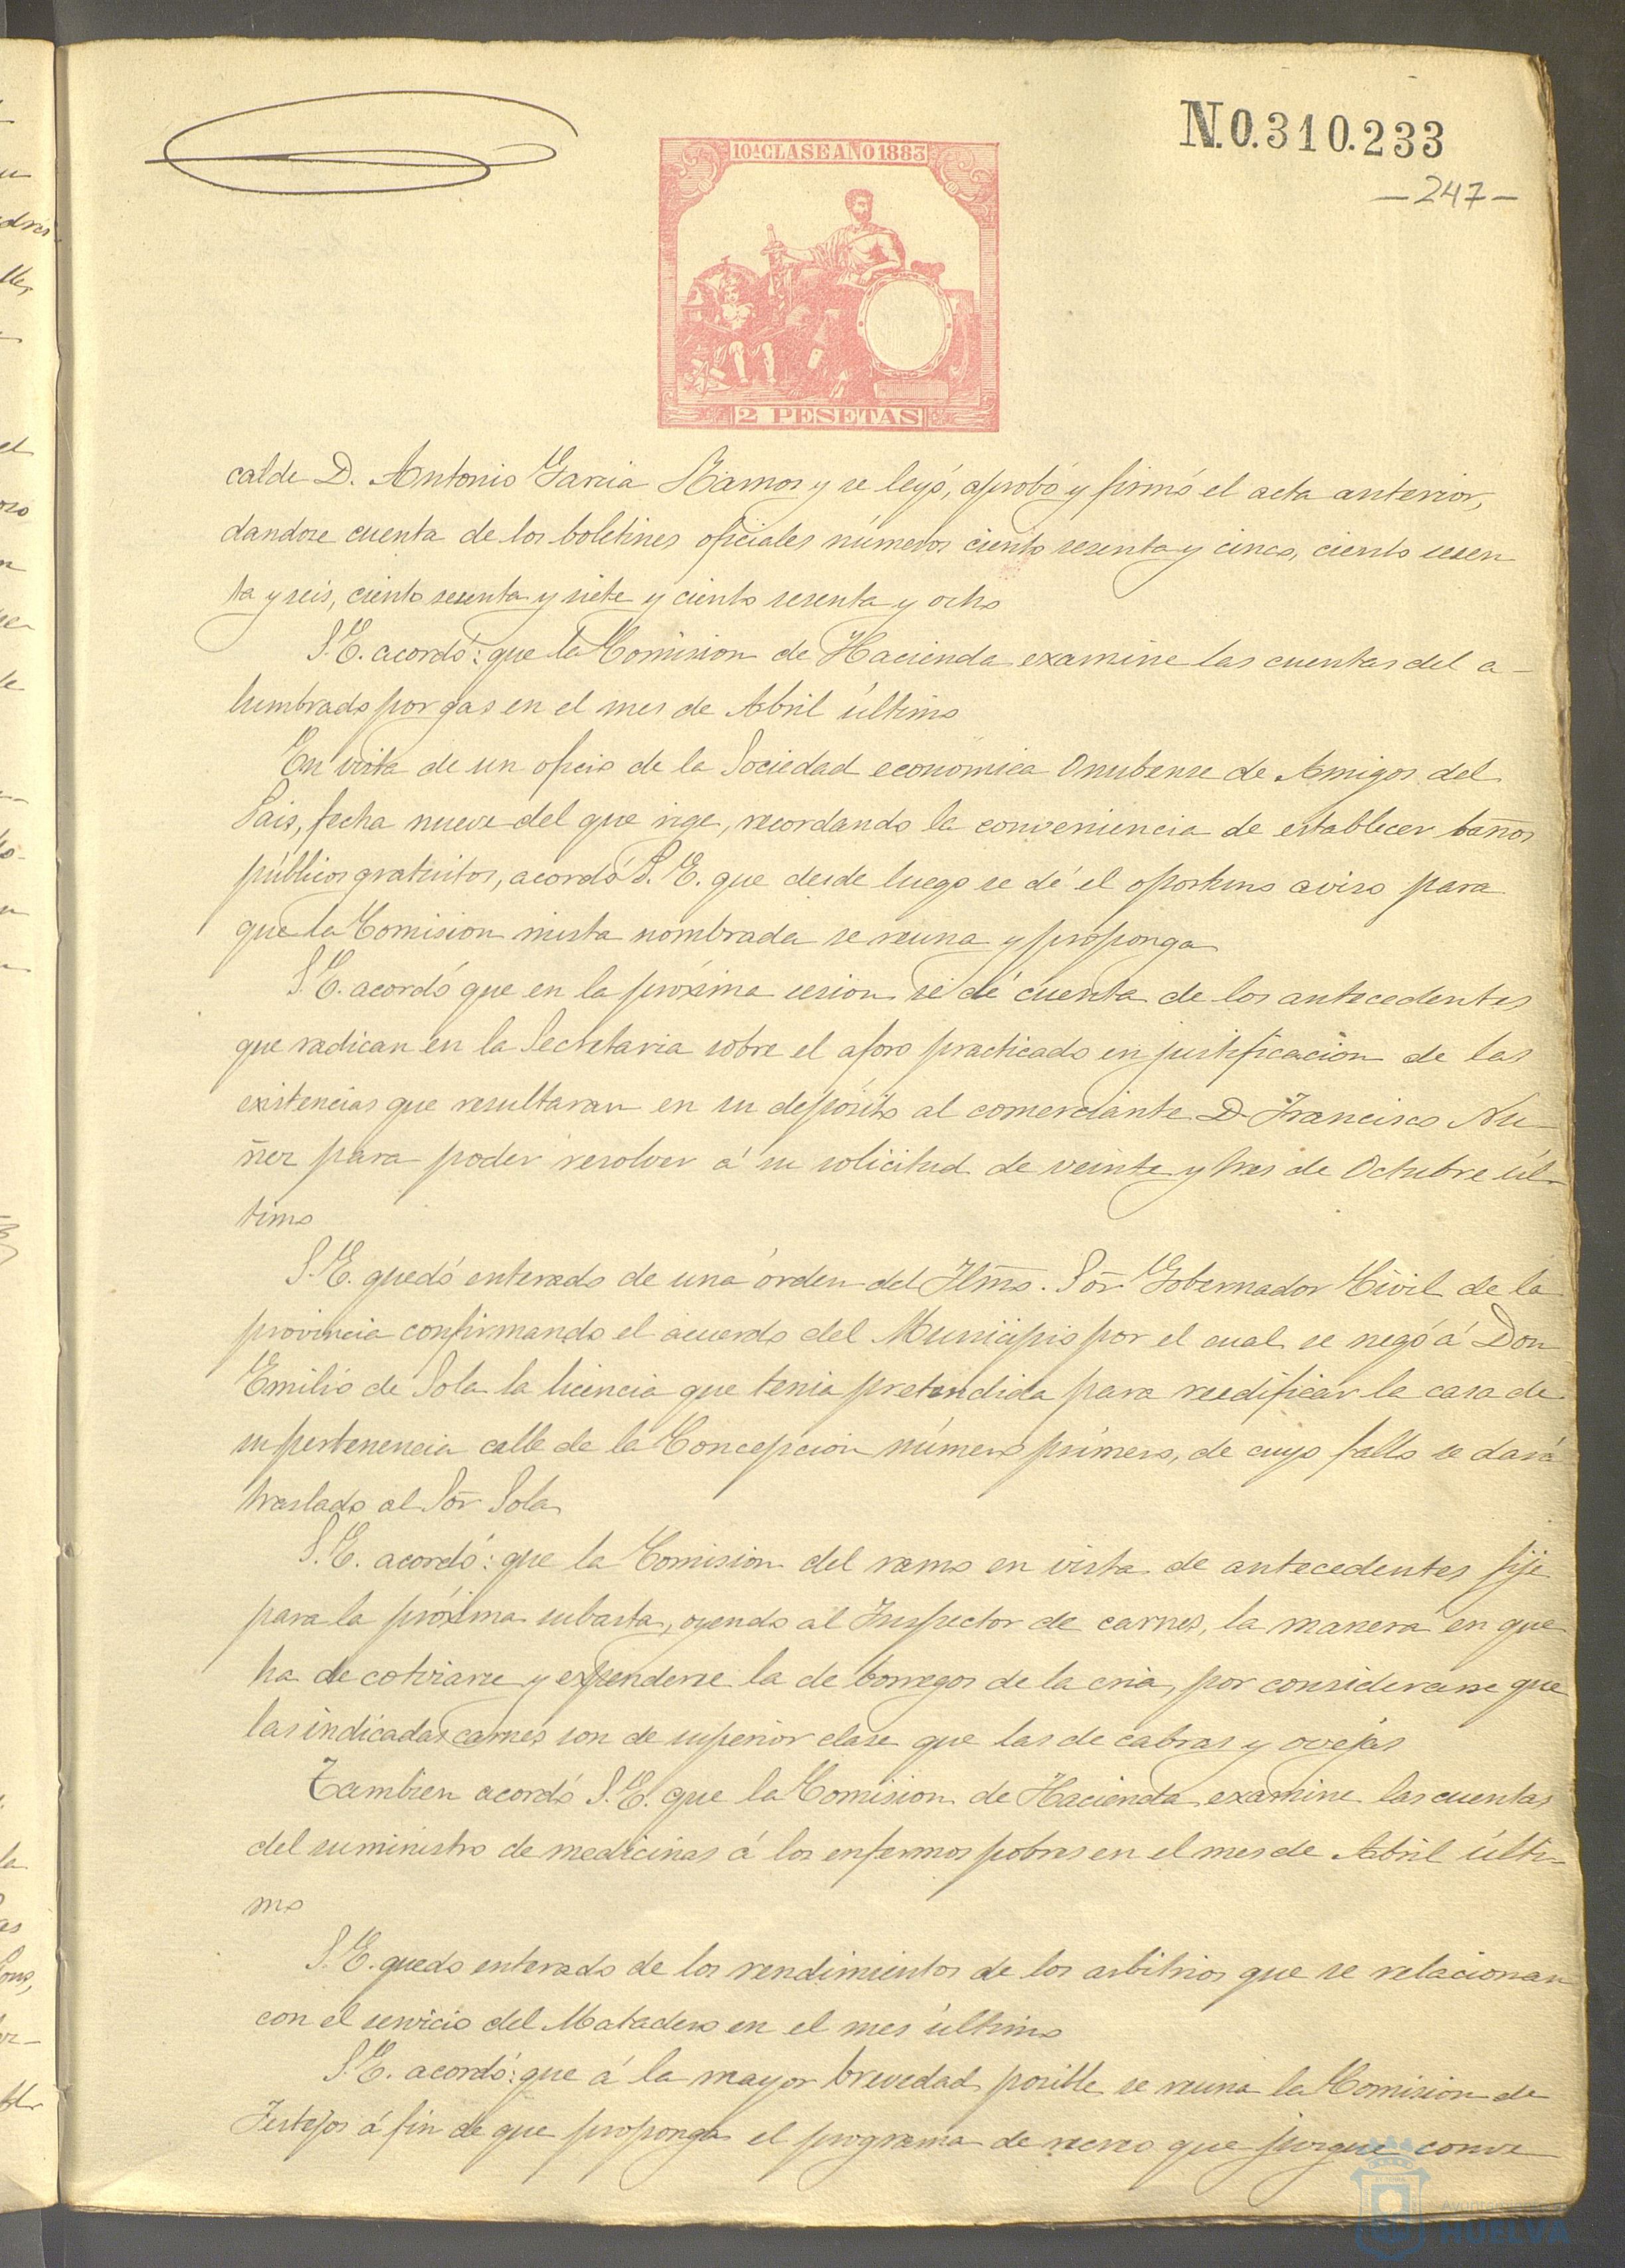 N.0.310.233
—247—
10ª CLASE AÑO 1883
2 PESETAS
calde D. Antonio Garcia Ramos y se leyó, aprobó y firmó el acta anterior,
dandose cuenta de los boletines oficiales números ciento sesenta y cinco, ciento sesen
ta y seis, ciento sesenta y siete y ciento sesenta y ocho
S.E. acordó: que la Comision de Hacienda examine las cuentas del a-
lumbrado por gas en el mes de Abril último
En vista de un oficio de la Sociedad económica Onubense de Amigos del
Pais, fecha nueve del que rige, recordando la conveniencia de establecer baños
públicos gratuitos, acordó S.E. que desde luego se dé el oportuno aviso para
que la Comision mista nombrada se reuna y proponga
S.E. acordó que en la próxima sesion se dé cuenta de los antecedentes
que radican en la Secretaria sobre el aforo practicado en justificacion de las
existencias que resultaran en su depósito al comerciante D. Francisco Nu-
ñez para poder resolver á su solicitud de veinte y tres de Octubre úl-
timo
S.E. quedó enterado de una órden del Ilmo. Sor Gobernador Civil de la
provincia confirmando el acuerdo del Municipio por el cual se negó á Don
Emilio de Sola la licencia que tenia pretendida para reedificar la casa de
su pertenencia calle de la Concepcion número primero, de cuyo fallo se dará
traslado al Sor Sola
S.E. acordó: que la Comision del ramo en vista de antecedentes fije
para la próxima subasta, oyendo al Inspector de carnes, la manera en que
ha de cotizarse y expenderse la de borregos de la cria, por considerarse que
las indicadas carnes son de superior clase que las de cabras y ovejas
Tambien acordó S.E. que la Comision de Hacienda examine las cuentas
del suministro de medicinas á los enfermos pobres en el mes de Abril últi-
mo
S.E. quedo enterado de los rendimientos de los arbitrios que se relacionan
con el servicio del Matadero en el mes último
S.E. acordó: que á la mayor brevedad posible se reuna la Comision de
Festejos á fin de que proponga el programa de recreo que juzgue conve
HUELVA